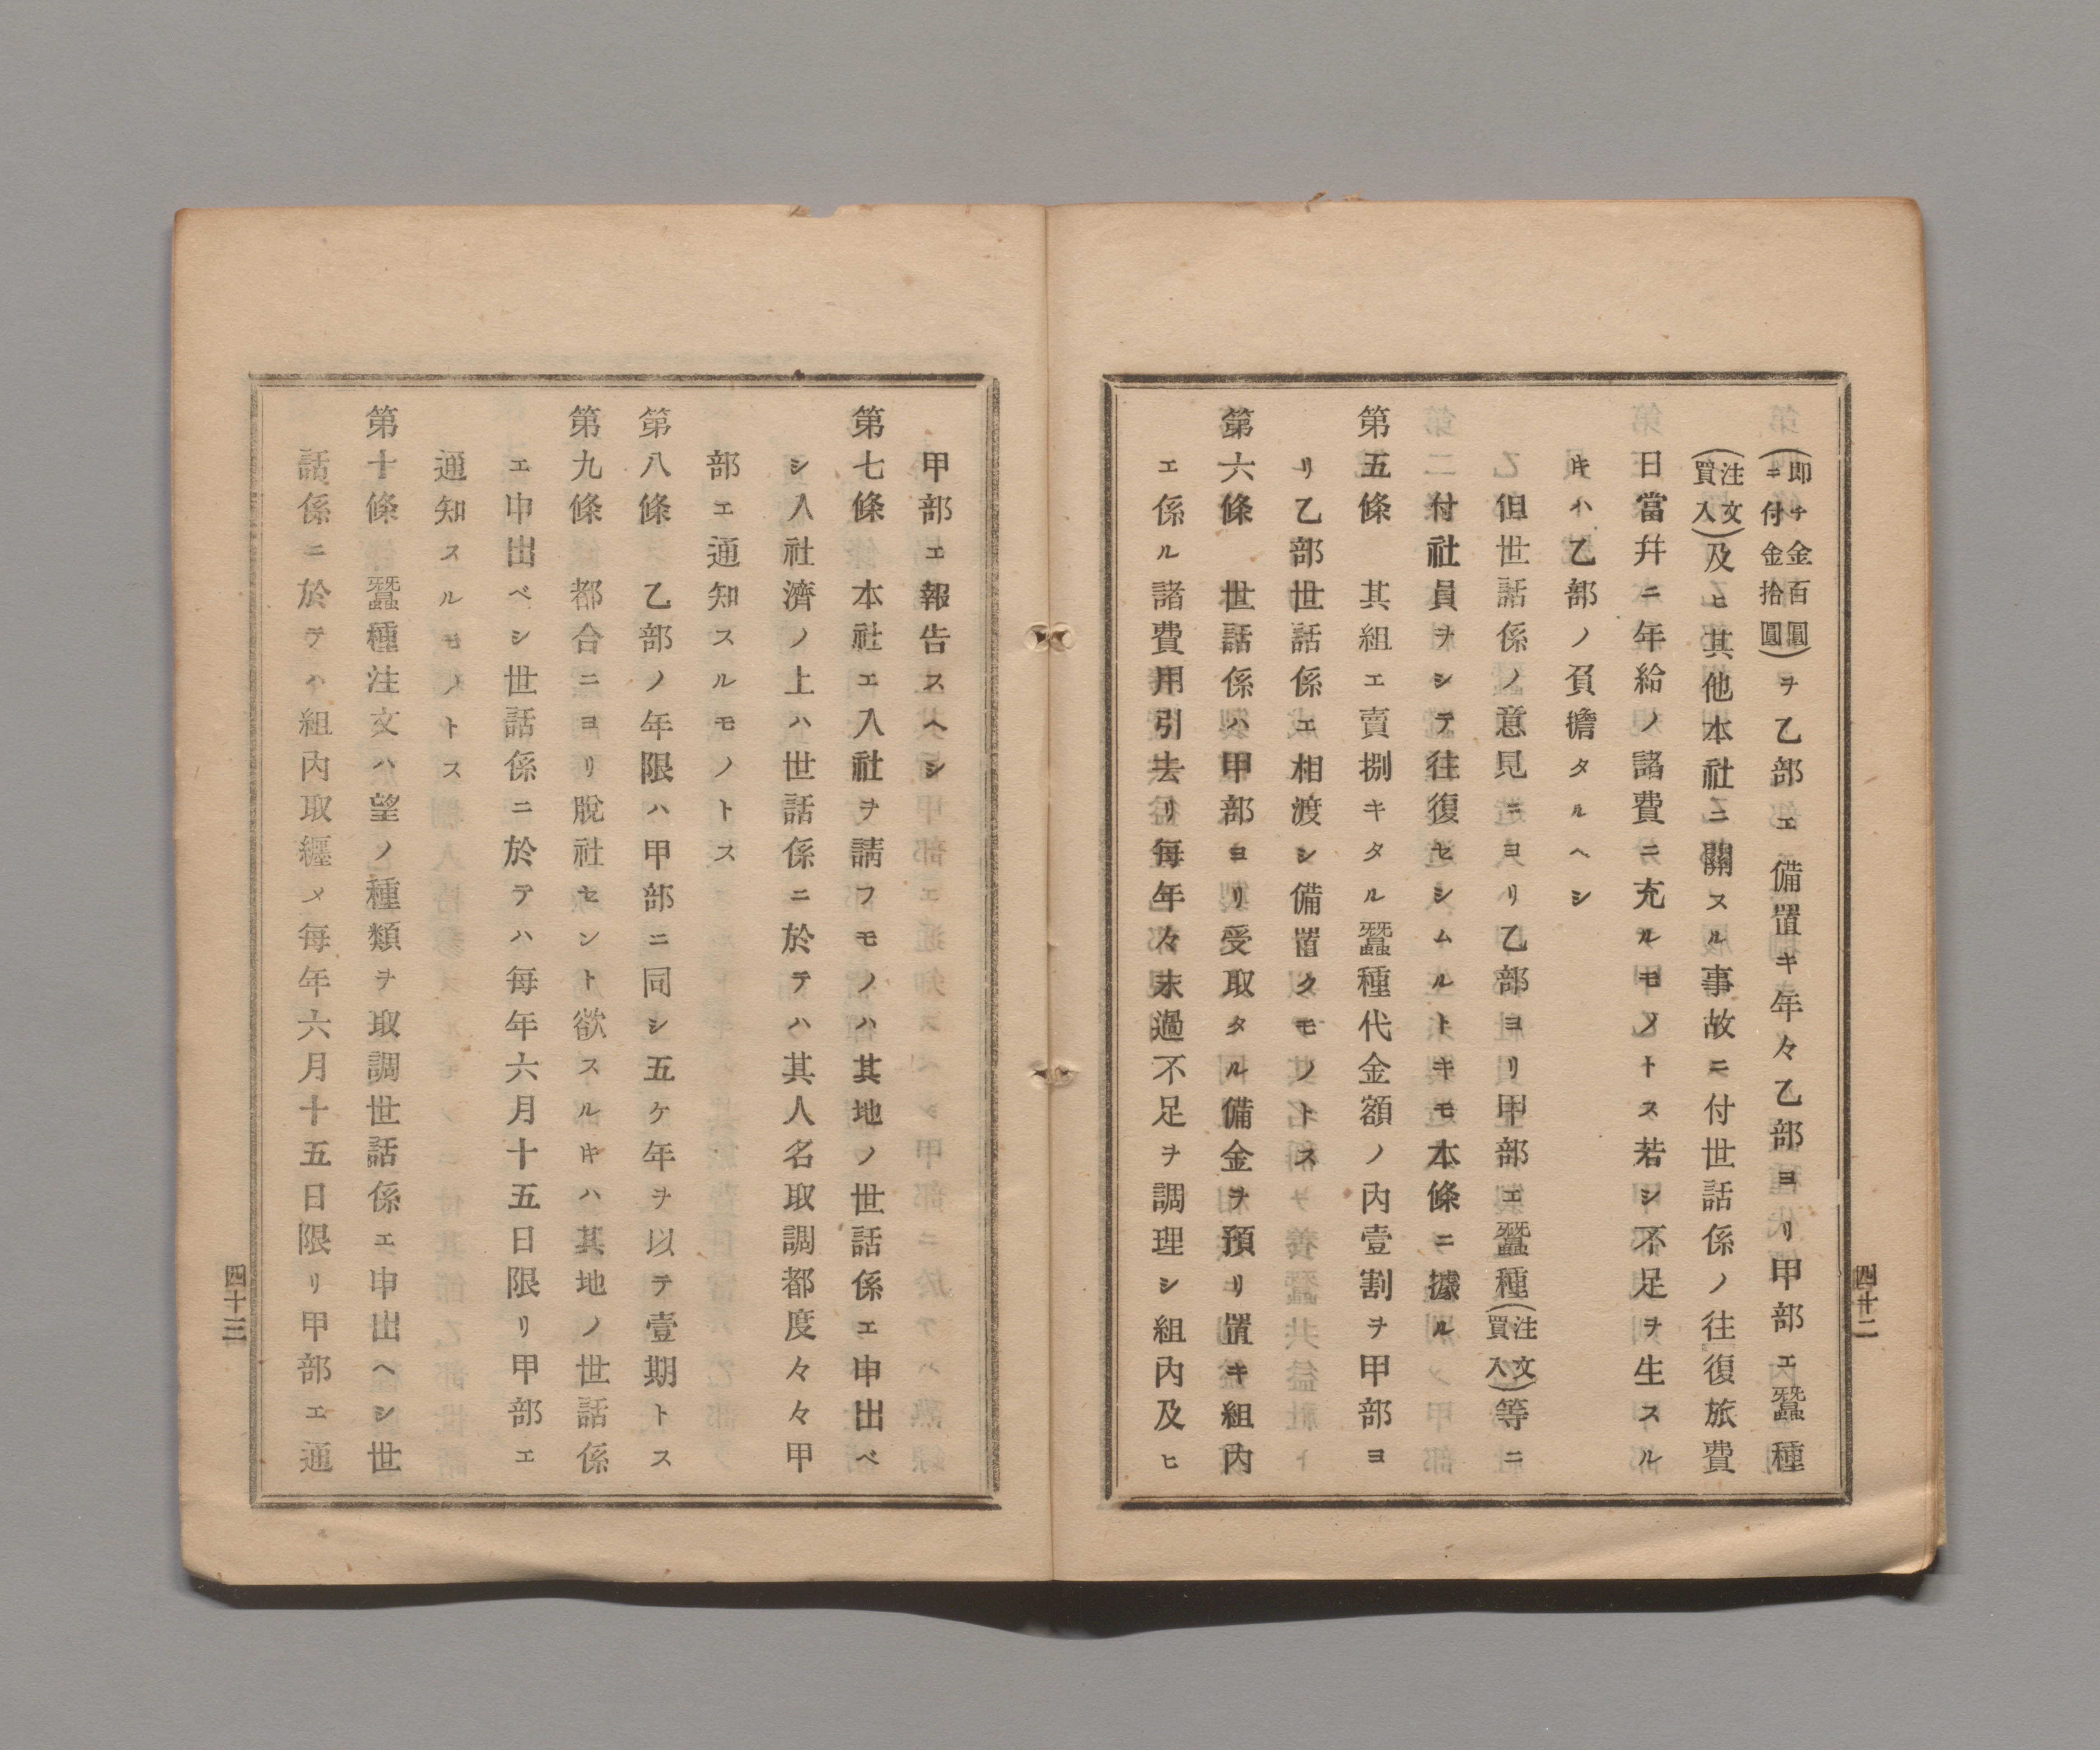 (即チ金百圓ニ付金拾圓)ヲ乙部エ備置キ年々乙部ヨリ甲部エ蠶種
(注文買入)及ヒ其他本社ニ關スル事故ニ付世話係ノ往復旅費
日當幷ニ年給ノ諸費ニ充ルモノトス若シ不足ヲ生スル
キハ乙部ノ負擔タルヘシ
但世話係ノ意見ニヨリ乙部ヨリ甲部エ蠶種(注文買入)等ニ
付社員ヲシテ往復セシムルトキモ本條ニ據ル
第五條 其組エ賣捌キタル蠶種代金額ノ內壹割ヲ甲部ヨ
リ乙部世話係エ相渡シ備置クモノトス
第六條 世話係ハ甲部ヨリ受取タル備金ヲ預リ置キ組內
エ係ル諸費用引去リ每年々末過不足ヲ調理シ組內及ヒ
四十二
甲部エ報告スヘシ
第七條 本社エ入社ヲ請フモノハ其地ノ世話係エ申出ベ
シ入社濟ノ上ハ世話係ニ於テハ其人名取調都度々々甲
部エ通知スルモノトス
第八條 乙部ノ年限ハ甲部ニ同シ五ケ年ヲ以テ壹期トス
第九條 都合ニヨリ脫社セント欲スルキハ其地ノ世話係
エ申出ベシ世話係ニ於テハ每年六月十五日限リ甲部エ
通知スルモノトス
第十條 蠶種注文ハ望ノ種類ヲ取調世話係エ申出ヘシ世
話係ニ於テハ組內取纒メ每年六月十五日限リ甲部エ通
四十三